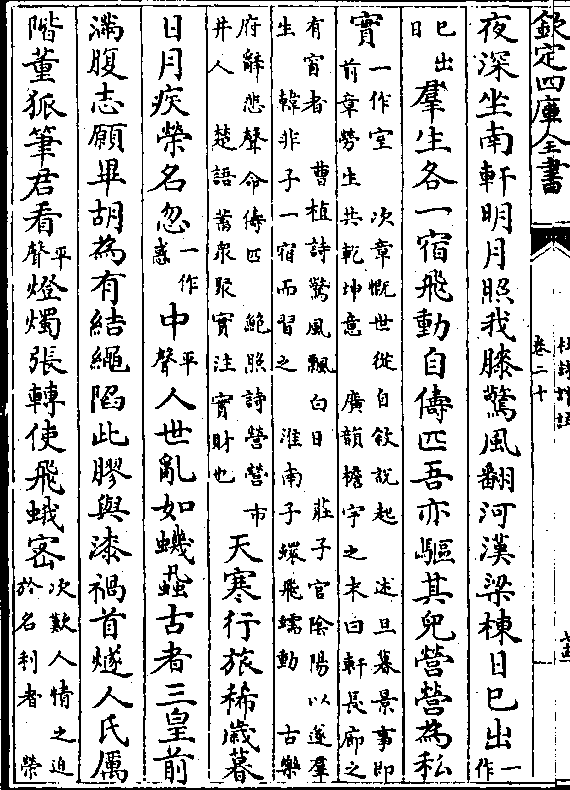 欽定四庫全書
杜詩詳註
卷二十
夜深坐南軒明月照我膝驚風翻河漢梁棟日已出一作
已出日羣生各一宿飛動自儔匹吾亦驅其兒營營為私
實一作室 次章慨世從自敘說起 述旦暮景事即
前章勞生共乾坤意 廣韻檐宇之末曰軒長廊之
有窗者 曹植詩驚風飄白日 莊子官陰陽以遂羣
生 韓非子一宿而習之 淮南子蠉飛蠕動 古樂
府辭悲聲命儔匹 鮑照詩營營市
井人 楚語蓄衆聚實注實財也 天寒行旅稀歲暮
日月疾榮名忽一作惑中平聲人世亂如蟣蝨古者三皇前
滿腹志願畢胡為有結繩陷此膠與漆禍首燧人氏厲
階董狐筆君看平聲燈燭張轉使飛蛾密次歎人情之迫
於名利者 榮